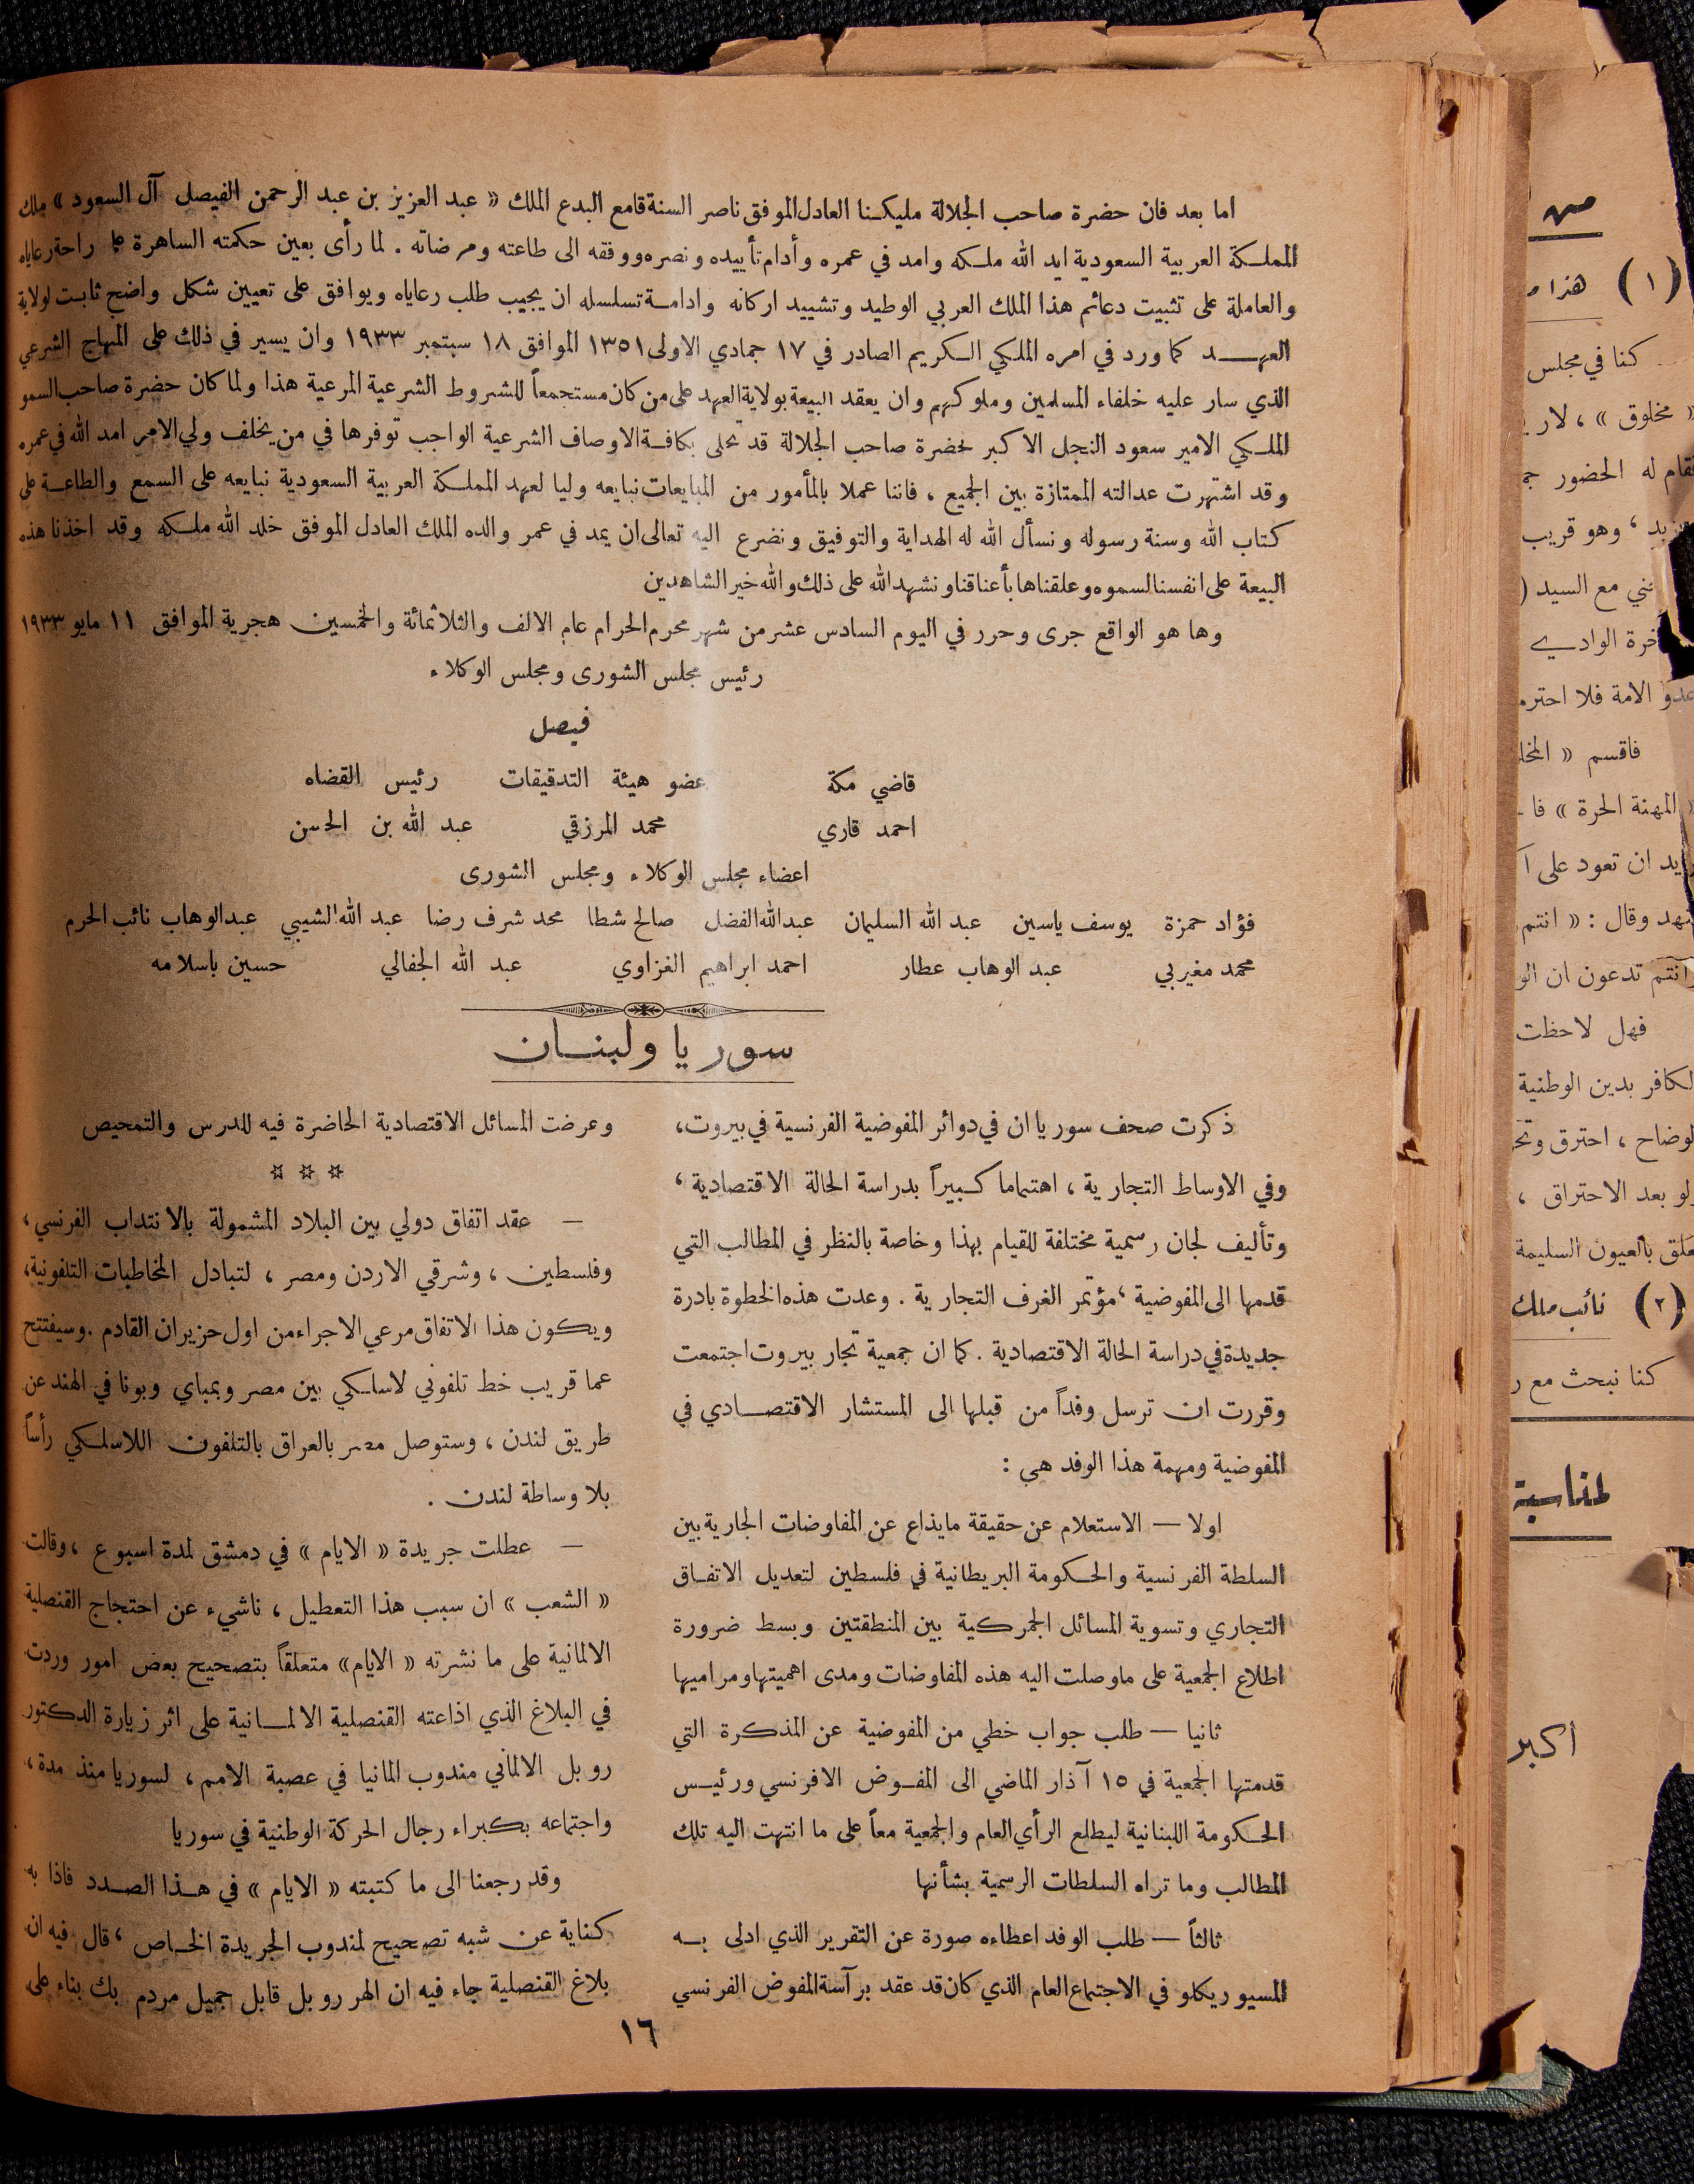 اما بعد فان حضرة صاحب الجلالة مليكنا العادل الموفق ناصر السنة قامع البدع الملك « عبد العزيز بن عبد الرحمن الفيصل آل السعود » ملك
المملكة العربية السعودية ايد الله ملكه وامد في عمره وأدام تأييده ونصره ووفقه الى طاعته ومرضاته . لما رأى بعين حكمته الساهرة على راحة رعاياه
والعاملة على تثبيت دعائم هذا الملك العربي الوطيد وتشييد اركانه وادامة تسلسله ان يجيب طلب رعاياه ويوافق على تعيين شكل واضح ثابت لولاية
العهد كما ورد في امره الملكي الكريم الصادر في ١٧ جمادي الاولى ١٣٥١ الموافق ١٨ سبتمبر ١٩٣٣ وان يسير في ذلك على المنهاج الشرعي
الذي سار عليه خلفاء المسلمين وملوكهم وان يعقد البيعة بولاية العهد على من كان مستجمعاً للشروط الشرعية المرعية هذا ولما كان حضرة صاحب السمو
الملكي الامير سعود النجل الاكبر لحضرة صاحب الجلالة قد تحلى بكافة الاوصاف الشرعية الواجب توفرها في من يخلف ولي الامر امد الله في عمره
وقد اشتهرت عدالته الممتازة بين الجميع ، فاننا عملا بالمأمور من المبايعات نبايعه وليا لعهد المملكة العربية السعودية نبايعه على السمع والطاعة على
كتاب الله وسنة رسوله ونسأل الله له الهداية والتوفيق ونضرع اليه تعالى ان يمد في عمر والده الملك العادل الموفق خلد الله ملكه وقد اخذنا هذه
البيعة على انفسنا لسموه وعلقناها بأعناقنا ونشهد الله على ذلك والله خير الشاهدين
وها هو الواقع جرى وحرر في اليوم السادس عشر من شهر محرم الحرام عام الالف والثلاثمائة والخمسين هجرية الموافق ١١ مايو ١٩٣٣
رئيس مجلس الشورى ومجلس الوكلاء
فيصل
قاضي مكة عضو هيئة التدقيقات رئيس القضاه
احمد قاري محمد المرزقي عبد الله بن الحسن
اعضاء مجلس الوكلاء ومجلس الشورى
فؤاد حمزة يوسف ياسين عبد الله السليمان عبد الله الفضل صالح شطا محمد شرف رضا عبد الله الشيبي عبد الوهاب نائب الحرم
محمد مغيربي عبد الوهاب عطار احمد ابراهيم الغزاوي عبد الله الجفالي حسين باسلامه
سوريا ولبنان
ذكرت صحف سوريا ان في دوائر المفوضية الفرنسية في بيروت،
وفي الاوساط التجارية ، اهتماما كبيراً بدراسة الحالة الاقتصادية ،
وتأليف لجان رسمية مختلفة للقيام بهذا وخاصة بالنظر في المطالب التي
قدمها الى المفوضية ، مؤتمر الغرف التجارية . وعدت هذه الخطوة بادرة
جديدة في دراسة الحالة الاقتصادية . كما ان جمعية تجار بيروت اجتمعت
وقررت ان ترسل وفداً من قبلها الى المستشار الاقتصادي في
المفوضية ومهمة هذا الوفد هي :
اولا — الاستعلام عن حقيقة مايذاع عن المفاوضات الجارية بين
السلطة الفرنسية والحكومة البريطانية في فلسطين لتعديل الاتفاق
التجاري وتسوية المسائل الجمركية بين المنطقتين وبسط ضرورة
اطلاع الجمعية على ماوصلت اليه هذه المفاوضات ومدى اهميتها ومراميها
ثانيا — طلب جواب خطي من المفوضية عن المذكرة التي
قدمتها الجمعية في ١٥ آذار الماضي الى المفوض الافرنسي ورئيس
الحكومة اللبنانية ليطلع الرأي العام والجمعية معاً على ما انتهت اليه تلك
المطالب وما تراه السلطات الرسمية بشأنها
ثالثاً — طلب الوفد اعطاءه صورة عن التقرير الذي ادلى به
المسيو ريكلو في الاجتماع العام الذي كان قد عقد برآسة المفوض الفرنسي
وعرضت المسائل الاقتصادية الحاضرة فيه للدرس والتمحيص
☆ ☆ ☆
— عقد اتفاق دولي بين البلاد المشمولة بالانتداب الفرنسي ،
وفلسطين ، وشرقي الاردن ومصر ، لتبادل المخاطبات التلفونية،
ويكون هذا الاتفاق مرعي الاجراء من اول حزيران القادم . وسيفتتح
عما قريب خط تلفوني لاسلكي بين مصر وبمباي وبونا في الهند عن
طريق لندن ، وستوصل مصر بالعراق بالتلفون اللاسلكي رأساً
بلا وساطة لندن .
— عطلت جريدة « الايام » في دمشق لمدة اسبوع ، وقالت
« الشعب » ان سبب هذا التعطيل ، ناشيء عن احتجاج القنصلية
الالمانية على ما نشرته « الايام » متعلقاً بتصحيح بعض امور وردت
في البلاغ الذي اذاعته القنصلية الالمانية على اثر زيارة الدكتور
روبل الالماني مندوب المانيا في عصبة الامم ، لسوريا منذ مدة ،
واجتماعه بكبراء رجال الحركة الوطنية في سوريا
وقد رجعنا الى ما كتبته « الايام » في هذا الصدد فاذا به
كناية عن شبه تصحيح لمندوب الجريدة الخاص ، قال فيه ان
بلاغ القنصلية جاء فيه ان الهر روبل قابل جميل مردم بك بناء على
١٦
من
(١) هذا
كنا في مجلس
« مخلوق » ،
له الحضور
، وهو قريب
مع السيد (
الوادي
عدو الامة فلا
فاقسم »
المهنة الحرة »
ان تعود على
وقال : « انتم
انتم تدعون ان
فهل لاحظت
الكافر بدين الوطنية
، احترق
ولو بعد الاحتراق ،
بالعيون السليمة
(٢) نائب ملك
كنا نبحث مع
لمناسبة
أكبر